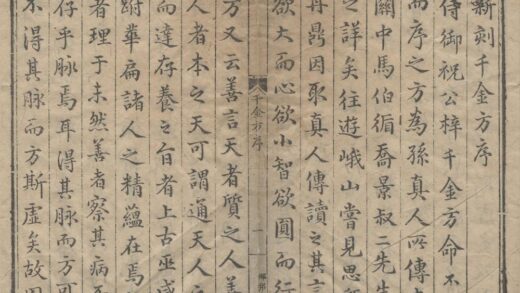 新刻千金方序
侍御祝公梓千金方命不
而序之方為孫真人所傳
關中馬伯循喬景叔二先生
之詳矣往遊峨山嘗見思
丹鼎因取真人傳讀之其言
欲大而心欲小智欲圓而行
千金方序
一
方又云善言天者質之人善
人者本之天可謂通天人
而達存養之旨者上古巫咸
跗華扁諸人之精蘊在焉
者理于未然善者察其病
存乎脉焉耳得其脉而方可
不得其脉而方斯虚矣故